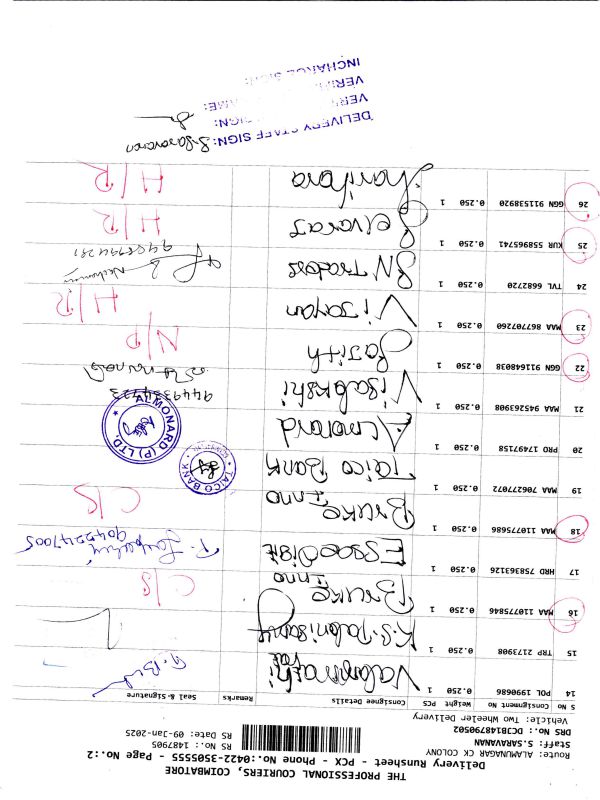 THE PROFESSIONAL COURIERS, COIMBATORE
Delivery Runsheet - PCX - Phone No.:0422-3505555 - Page No.:2
Route: ALAMUNAGAR CK COLONY
Staff: S.SARAVANAN
DRS No.: JCB1487902
RS No.: 1487905
Vehicle: Two Wheeler Delivery
RS Date: 09-Jan-2025
S No Consignment No Weight PCS Consignee Details Remarks Seal & Signature
14 POL 1990686 0.250 1 Valarmathi
15 TRP 2173908 0.250 1 K.S. Palanisamy
16 MAA 110775846 0.250 1 Bruke Inno C/S
17 HRD 758363126 0.250 1 9042247005
18 MAA 110775686 0.250 1 Bruke Inno C/S
19 MAA 706277072 0.250 1 Taico Bank TAICO BANK
20 PRO 17497158 0.250 1 Almonard ALMONARD (P) LTD.
21 MAA 945263908 0.250 1 Visalakshi
22 GGN 911648038 0.250 1 Sajith N/P
23 MAA 867707260 0.250 1 Vijayan H/R
24 TVL 6682720 0.250 1 SN Traders
25 KUR 558965741 0.250 1 Selvaraj H/R
26 GGN 911538920 0.250 1 Harihara H/R
DELIVERY STAFF SIGN: S.Saravanan
SIGN:
NAME:
INCHARGE SIGN: